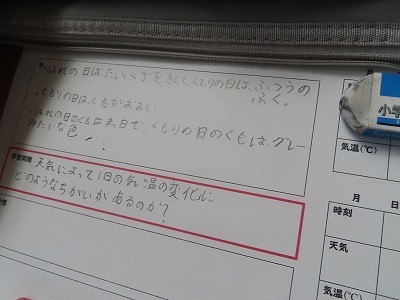 ・はれの日は、たいいくぎをきてて、くもりの日は、ふつうの
ふく。
・くもりの日は、くもがおおい
・はれの日のくもはまっ白で、くもりの日のくもは、グレー
みたいな色
学習問題 天気によって1日の気温の変化に
どのようなちがいがあるのか?
気温(℃)
月 日
時刻
天気
気温(℃)
小学